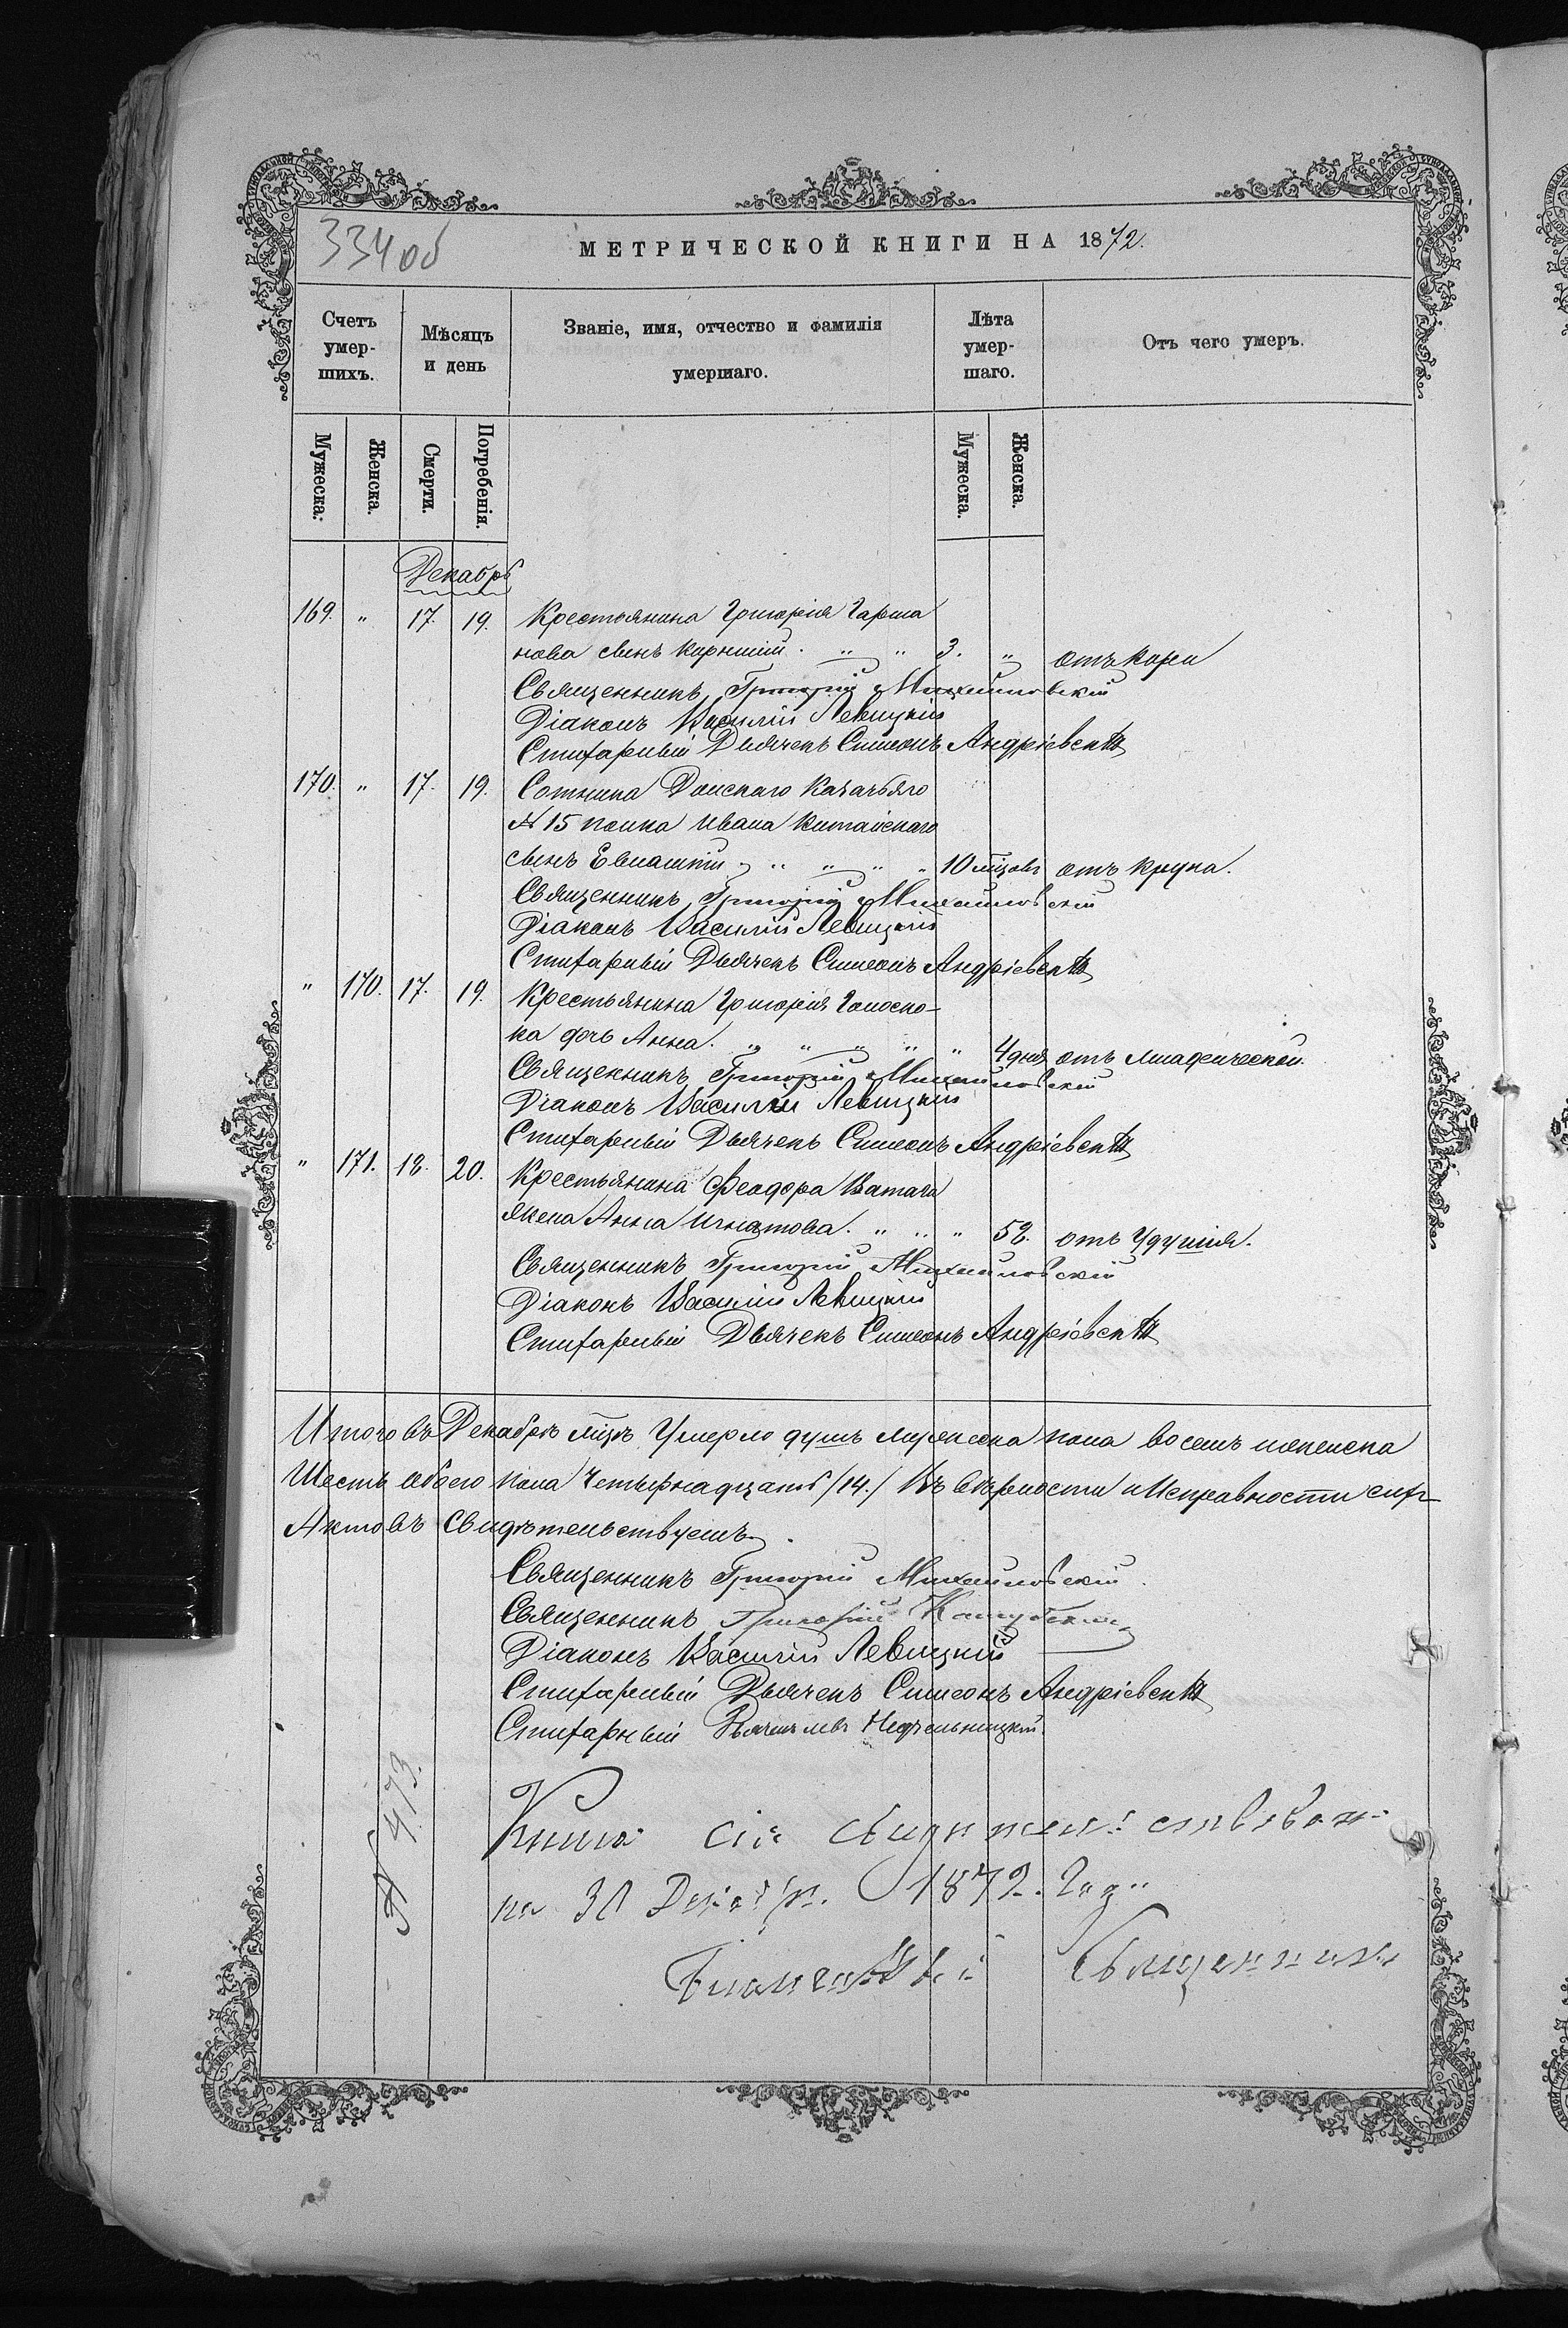 334 об
МЕТРИЧЕСКОЙ КНИГИ НА 1872.
Счетъ умер-шихъ.
Мѣсяцъ и день
Званіе, имя, отчество и фамилія умершаго.
Лѣта умер-шаго.
Отъ чего умеръ.
Мужеска. Женска. Смерти. Погребенія. Мужеска. Женска.
Декабрь
169. " 17. 19. Крестьянина Григорія
нова сынъ " " 3. " отъ Кори
Священникъ Григорій Михайловскій
Діаконъ Василій Левицкій
Стихарный Дьячекъ Симеонъ Андріевскій
170. " 17. 19. Сотника Донскаго Казачьяго
№ 15 полка Ивана Китайскаго
сынъ " " " " 10 мѣцовъ отъ Крупа.
Священникъ Григорій Михайловскій
Діаконъ Василій Левицкій
Стихарный Дьячекъ Симеонъ Андріевскій
" 170. 17. 19. Крестьянина Григорія Голоско-
ка дочь Анна. " " " " " 4 дня отъ младенческой.
Священникъ Григорій Михайловскій
Діаконъ Василій Левицкій
Стихарный Дьячекъ Симеонъ Андріевскій
" 171. 18. 20. Крестьянина Феодора Ватага
жена Анна Игнатова. " " " 52. отъ Удушія.
Священникъ Григорій Михайловскій
Діаконъ Василій Левицкій
Стихарный Дьячекъ Симеонъ Андріевскій
Итого въ Декабрѣ мцѣ Умерло душъ мужеска пола восемъ и женска
Шесть обоего пола Четырнадцать /14./ Въ вѣрности и Исправности сихъ
Актовъ свидѣтельствуемъ.
Священникъ Григорій Михайловскій.
Священникъ Григорій
Діаконъ Василій Левицкій
Стихарный Дьячекъ Симеонъ Андріевскій
Стихарный Дьячекъ Левъ Недѣльницкій.
№ 473.
Книга сія свидѣтельствована
на 30 Декабр. 1872. Года
Благочинный Священникъ